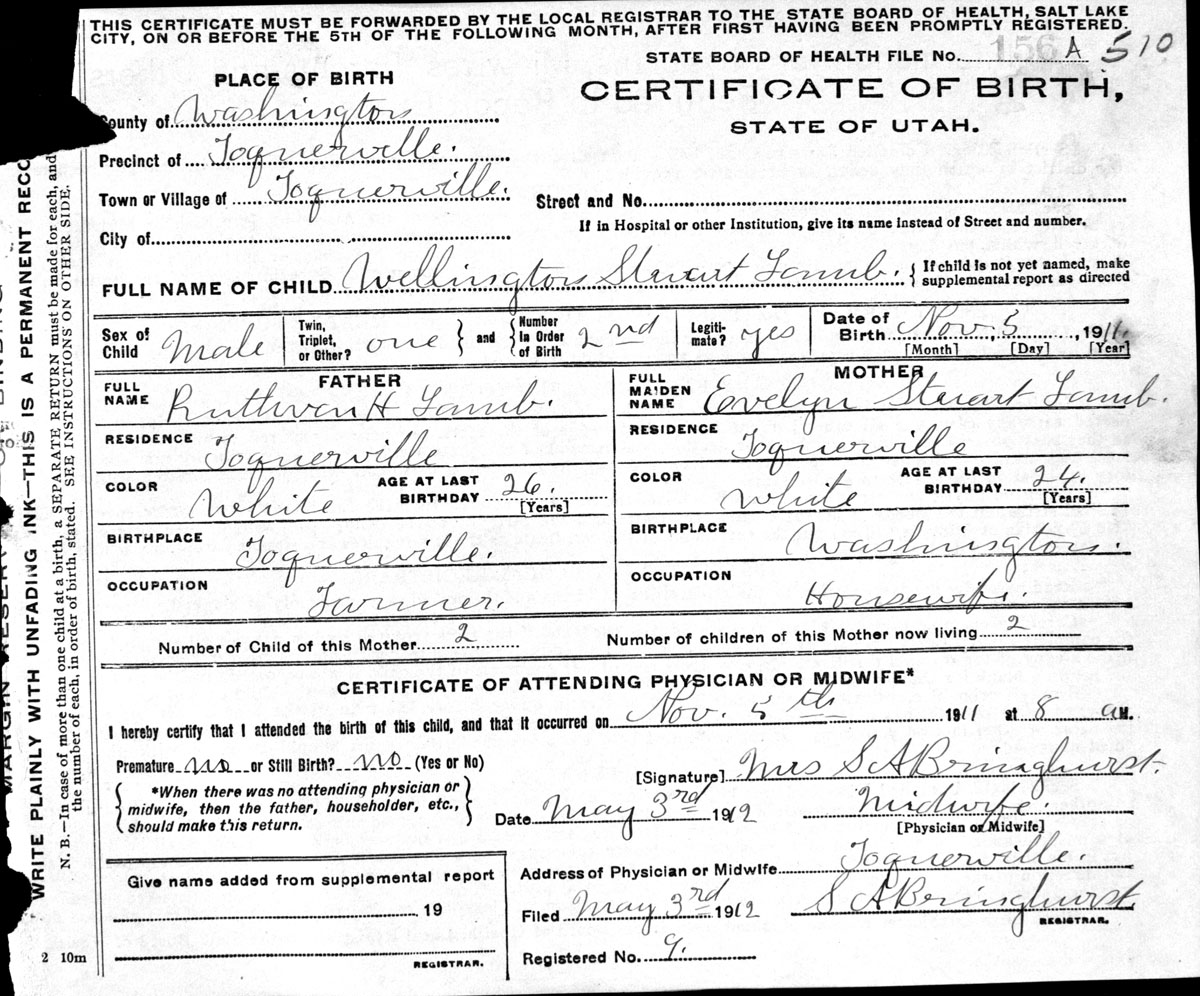 THIS CERTIFICATE MUST BE FORWARDED BY THE LOCAL REGISTRAR TO THE STATE BOARD OF HEALTH, SALT LAKE
CITY, ON OR BEFORE THE 5TH OF THE FOLLOWING MONTH, AFTER FIRST HAVING BEEN PROMPTLY REGISTERED.
STATE BOARD OF HEALTH FILE No. 156 A 510
PLACE OF BIRTH
CERTIFICATE OF BIRTH,
STATE OF UTAH.
County of Washington
Precinct of Toquerville.
Town or Village of Toquerville.
Street and No.
If in Hospital or other Institution, give its name instead of Street and number.
City of
FULL NAME OF CHILD Wellington Stewart Lamb. { If child is not yet named, make
supplemental report as directed
Sex of Child Male
Twin, Triplet, or Other? one } and { Number in Order of Birth 2nd
Legiti- mate? yes
Date of Birth Nov. 5, 1911.
[Month] [Day] [Year]
FATHER
FULL NAME Ruthvan H Lamb.
RESIDENCE Toquerville
COLOR White AGE AT LAST BIRTHDAY 26. [Years]
BIRTHPLACE Toquerville.
OCCUPATION Farmer.
MOTHER
FULL MAIDEN NAME Evelyn Stewart Lamb.
RESIDENCE Toquerville
COLOR White AGE AT LAST BIRTHDAY 24. [Years]
BIRTHPLACE Washington.
OCCUPATION Housewife.
Number of Child of this Mother 2 Number of children of this Mother now living 2
CERTIFICATE OF ATTENDING PHYSICIAN OR MIDWIFE*
I hereby certify that I attended the birth of this child, and that it occurred on Nov. 5th 1911 at 8 a M.
Premature no or Still Birth? no (Yes or No)
*When there was no attending physician or
midwife, then the father, householder, etc.,
should make this return.
[Signature] Mrs S A Bringhurst.
Date May 3rd 1912 Midwife.
[Physician or Midwife]
Address of Physician or Midwife Toquerville.
Filed May 3rd 1912 S A Bringhurst
REGISTRAR.
Registered No. 9.
Give name added from supplemental report
19
REGISTRAR.
2 10m
WRITE PLAINLY WITH UNFADING INK—THIS IS A PERMANENT RECO
N. B.—In case of more than one child at a birth, a SEPARATE RETURN must be made for each, and
the number of each, in order of birth, stated. SEE INSTRUCTIONS ON OTHER SIDE.